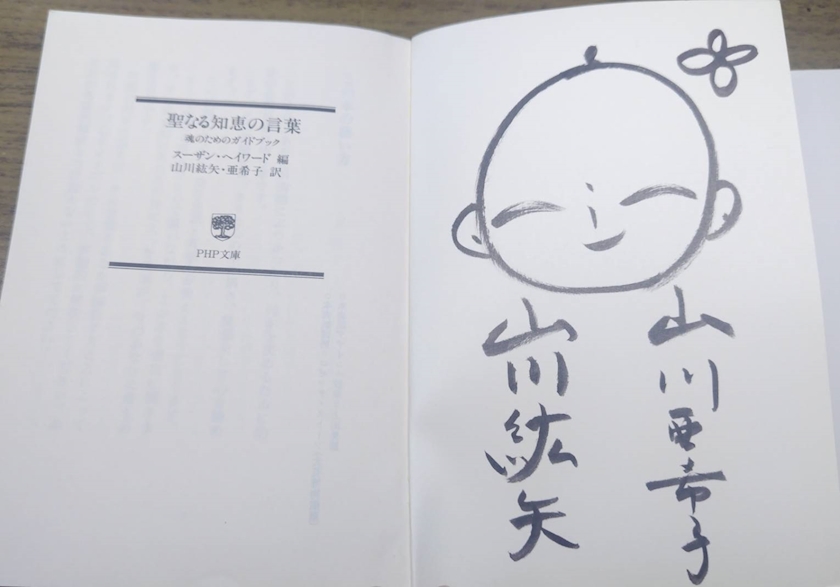 聖なる知恵の言葉
魂のためのガイドブック
スーザン・ヘイワード 編
山川紘矢・亜希子 訳
PHP文庫
山川亜希子
山川紘矢